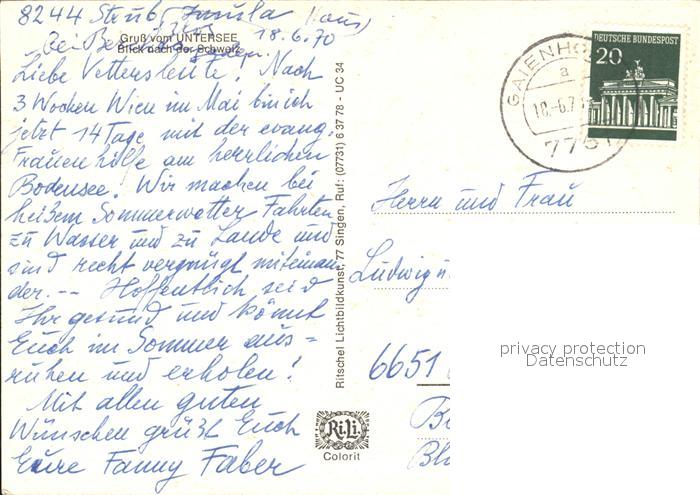 8244 Strub, Insula Haus
18.6.70
Gruß vom UNTERSEE
Blick nach der Schweiz
Liebe Vettersleute! Nach
3 Wochen Wien im Mai bin ich
jetzt 14 Tage mit der evang.
Frauenhilfe am herrlichen
Bodensee! Wir machen bei
heißem Sommerwetter Fahrten
zu Wasser und zu Lande und
sind recht vergnügt miteinan-
der. -- Hoffentlich seid
Ihr gesund und könnt
Euch im Sommer aus-
ruhen und erholen!
Mit allen guten
Wünschen grüßt Euch
Eure Fanny Faber
Ritschel Lichtbildkunst, 77 Singen, Ruf: (07731) 6 37 78 - UC 34
Ri.Li.
Colorit
DEUTSCHE BUNDESPOST
20
GAIENHO
a
18.-6.7
7761
Herrn und Frau
Ludwig
6651
privacy protection
Datenschutz